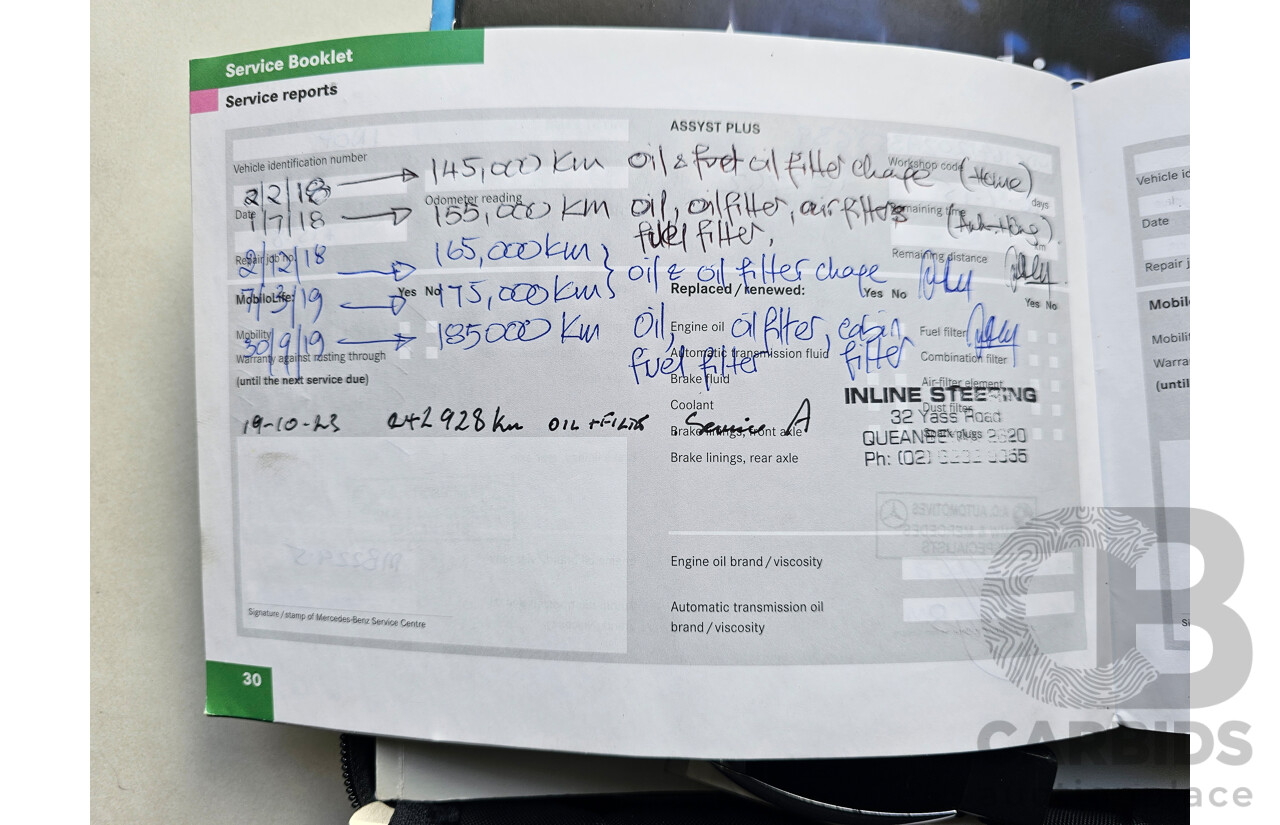 Service Booklet
Service reports
ASSYST PLUS
Vehicle identification number
Workshop code
2/2/18 → 145,000 km oil & fuel oil filter change (Home)
Date
Odometer reading
Remaining time
days
1/7/18 → 155,000 km oil, oil filter, air filters
fuel filter,
Repair job no.
Remaining distance
km
2/12/18 → 165,000 km
oil & oil filter change
MobiloLife:
Yes No
Replaced / renewed:
Yes No
Yes No
7/3/19 → 175,000 km
Mobility
Engine oil
Fuel filter
30/9/19 → 185000 km oil, oil filter, cabin filter
fuel filter
Warranty against rusting through
(until the next service due)
Automatic transmission fluid
Combination filter
Brake fluid
Air-filter element
Coolant
Dust filter
Brake linings, front axle
Spark plugs
Brake linings, rear axle
19-10-23 242928 km OIL + FILTER Service A
INLINE STEERING
32 Yass Road
QUEANBE 2620
Ph: (02)
Engine oil brand / viscosity
Automatic transmission oil
brand / viscosity
Signature / stamp of Mercedes-Benz Service Centre
30
Vehicle
Date
Repair
Mobil
Mobili
Warra
(until
CB
CARBIDS